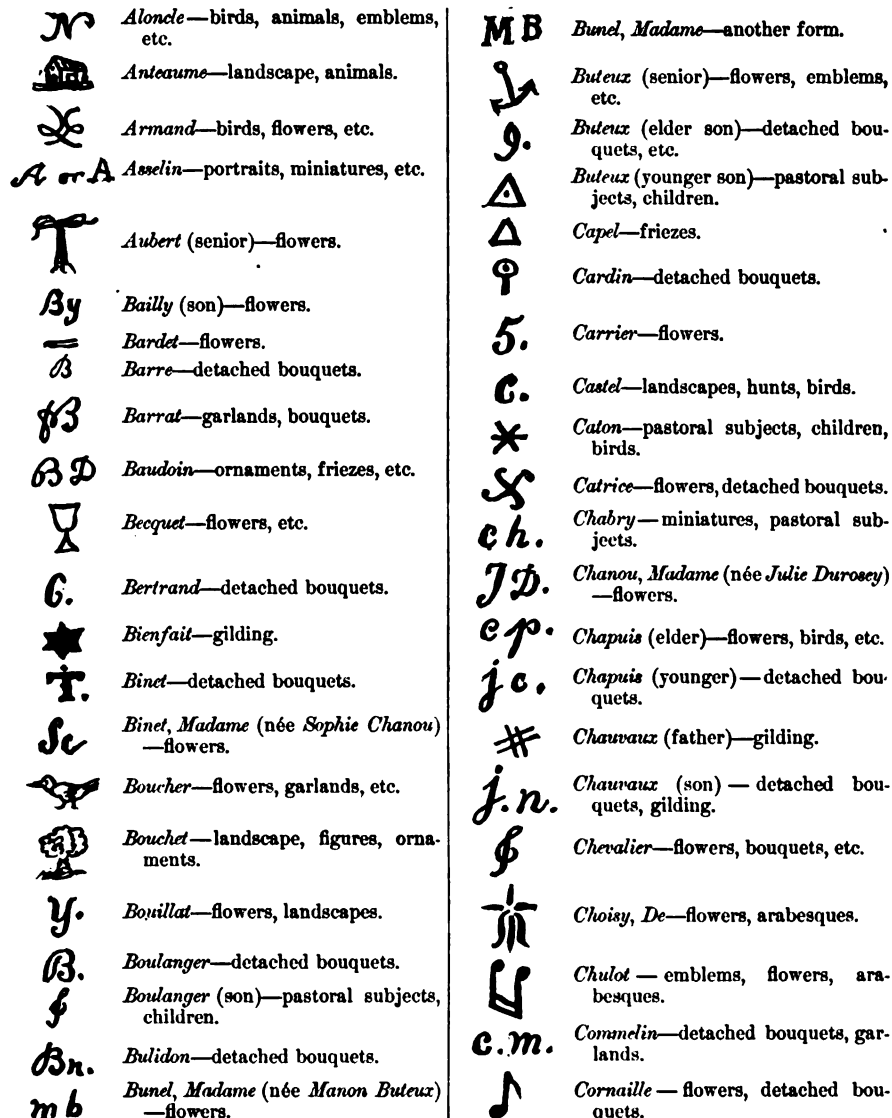 N Aloncle—birds, animals, emblems,
etc.
Anteaume—landscape, animals.
Armand—birds, flowers, etc.
A or A Asselin—portraits, miniatures, etc.
Aubert (senior)—flowers.
By Bailly (son)—flowers.
Bardet—flowers.
B Barre—detached bouquets.
Barrat—garlands, bouquets.
B D Baudoin—ornaments, friezes, etc.
Becquet—flowers, etc.
6. Bertrand—detached bouquets.
Bienfait—gilding.
T. Binet—detached bouquets.
Sc Binet, Madame (née Sophie Chanou)
—flowers.
Boucher—flowers, garlands, etc.
Bouchet—landscape, figures, orna-
ments.
Y. Bouillat—flowers, landscapes.
B. Boulanger—detached bouquets.
Boulanger (son)—pastoral subjects,
children.
Bn. Bulidon—detached bouquets.
m b Bunel, Madame (née Manon Buteux)
—flowers.
M B Bunel, Madame—another form.
Buteux (senior)—flowers, emblems,
etc.
9. Buteux (elder son)—detached bou-
quets, etc.
Buteux (younger son)—pastoral sub-
jects, children.
Capel—friezes.
Cardin—detached bouquets.
5. Carrier—flowers.
c. Castel—landscapes, hunts, birds.
Caton—pastoral subjects, children,
birds.
Catrice—flowers, detached bouquets.
ch. Chabry—miniatures, pastoral sub-
jects.
J D. Chanou, Madame (née Julie Durosey)
—flowers.
c p. Chapuis (elder)—flowers, birds, etc.
j c. Chapuis (younger)—detached bou-
quets.
Chauvaux (father)—gilding.
j. n. Chauvaux (son)—detached bou-
quets, gilding.
Chevalier—flowers, bouquets, etc.
Choisy, De—flowers, arabesques.
Chulot—emblems, flowers, ara-
besques.
c. m. Commelin—detached bouquets, gar-
lands.
Cornaille—flowers, detached bou-
quets.